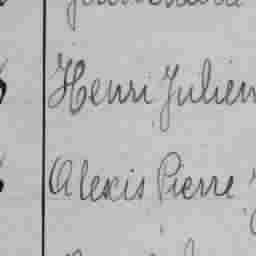 Henri Julien
Alexis Pierre